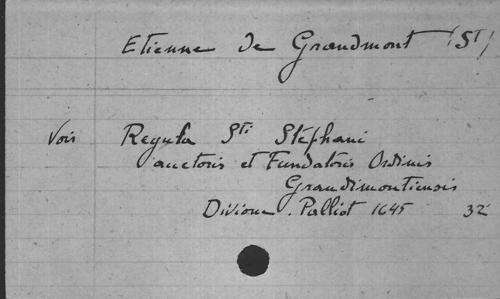 Etienne de Grandmont (St)
Vois Regula Sti Stéphani
auctoris et Fundatoris Ordinis
Grandimontiensis
Divione. Palliot 1645 32